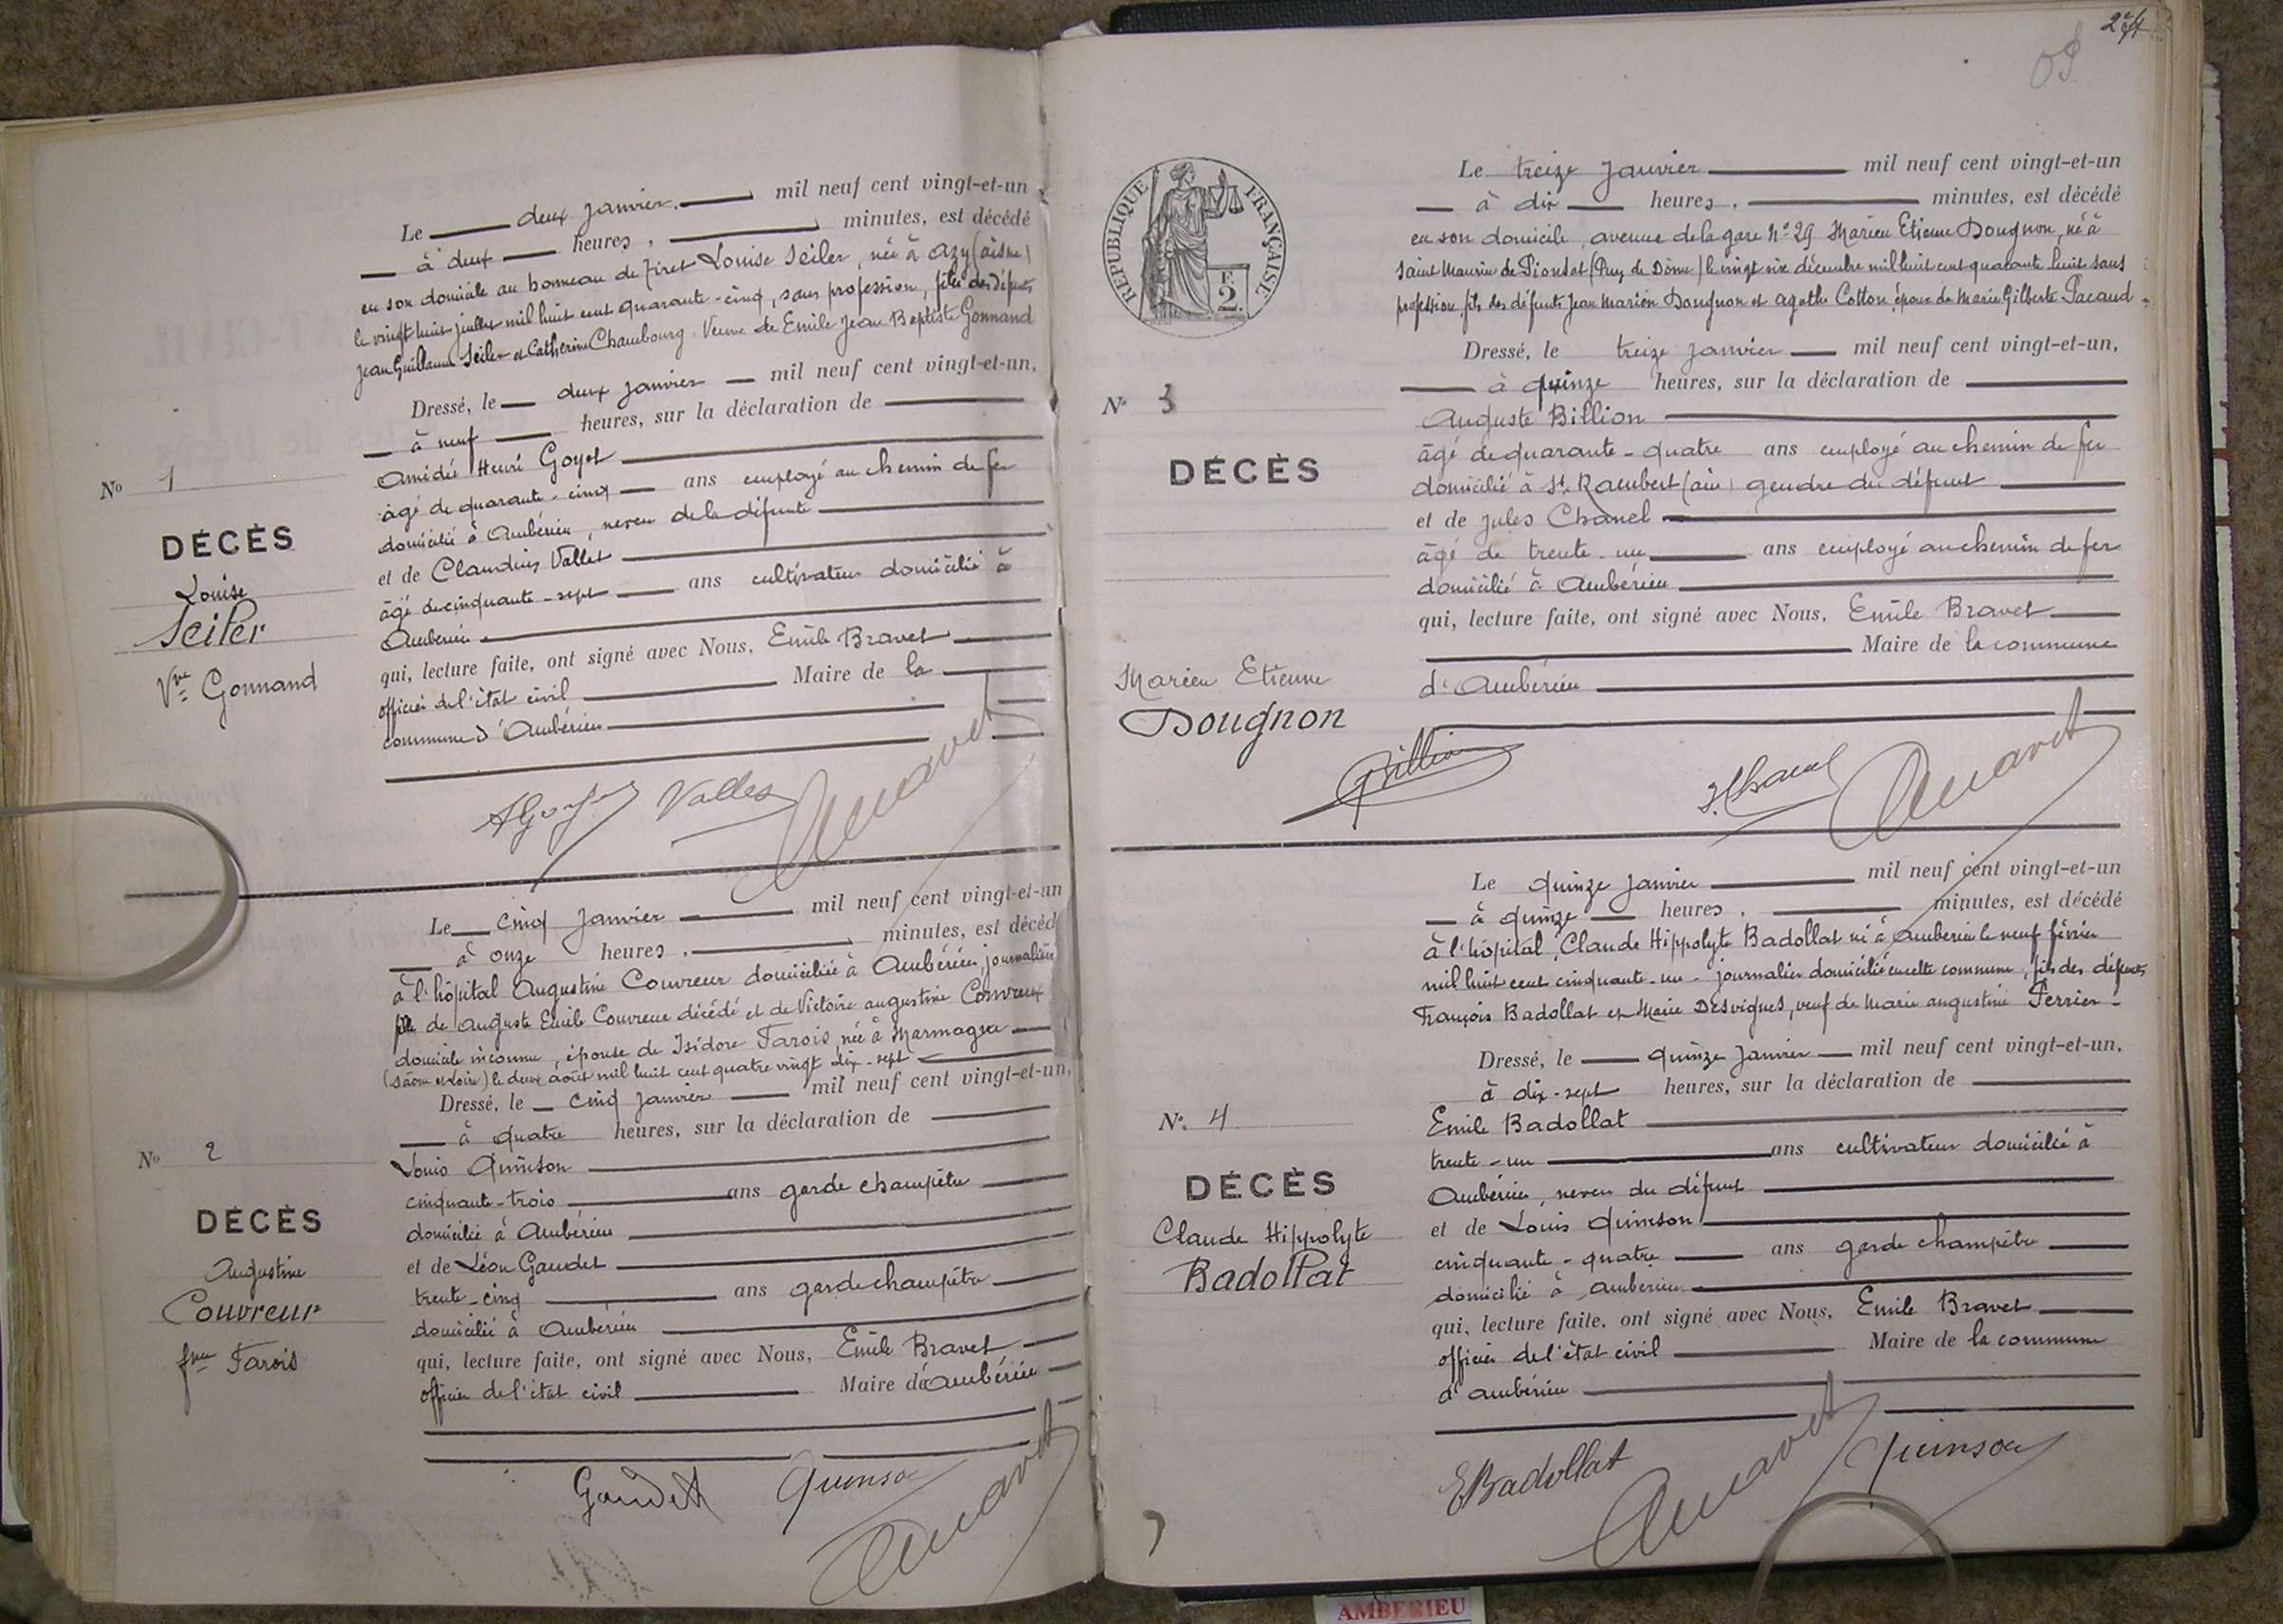 Le deux janvier mil neuf cent vingt-et-un
à deux heures, minutes, est décédé
en son domicile au hameau de Tiret Louise Seiler, née à Azy (aisne)
le vingt huit juillet mil huit cent quarante-cinq, sans profession, fille des défunts
Jean Guillaume Seiler et Catherine Chambourg. Veuve de Emile Jean Baptiste Gonnand
Dressé, le deux janvier mil neuf cent vingt-et-un,
à neuf heures, sur la déclaration de
Amédée Henri Goyet
âgé de quarante-cinq ans employé au chemin de fer
domicilié à Ambérieu, neveu de la défunte
et de Claudius Vallet
âgé de cinquante-sept ans cultivateur domicilié à
Ambérieu
qui, lecture faite, ont signé avec Nous, Emile Bravet
officier de l'état civil Maire de la
commune d'Ambérieu
No 1
DÉCÈS
Louise
Seiler
Vve Gonnand
Vallet
Le cinq janvier mil neuf cent vingt-et-un
à onze heures, minutes, est décéd
à l'hôpital Augustine Couvreur domiciliée à Ambérieu, journalière
fille de Auguste Emile Couvreur décédé et de Victoire Augustine Couvreux
domicile inconnu, épouse de Isidore Farois, née à Marmagne
(Saône et Loire) le deux août mil huit cent quatre vingt dix-sept
Dressé, le cinq janvier mil neuf cent vingt-et-un,
à quatre heures, sur la déclaration de
Louis Quinson
cinquante-trois ans garde champêtre
domicilié à Ambérieu
et de Léon Gaudet
trente-cinq ans garde champêtre
domicilié à Ambérieu
qui, lecture faite, ont signé avec Nous, Emile Bravet
officier de l'état civil Maire d'Ambérieu
No 2
DÉCÈS
Augustine
Couvreur
fme Farois
Gaudet Quinson
2
RÉPUBLIQUE FRANÇAISE
F.
2
Le treize janvier mil neuf cent vingt-et-un
à dix heures, minutes, est décédé
en son domicile, avenue de la gare No 29 Marien Etienne Dougnon, né à
Saint Maurin de Pionsat (Puy de Dôme) le vingt six décembre mil huit cent quarante huit sans
profession, fils des défunts Jean Marien Dougnon et Agathe Cotton, époux de Marie Gilberte Pacaud
Dressé, le treize janvier mil neuf cent vingt-et-un,
à quinze heures, sur la déclaration de
Auguste Billion
âgé de quarante-quatre ans employé au chemin de fer
domicilié à St Rambert (ain) gendre du défunt
et de Jules Chanel
âgé de trente-un ans employé au chemin de fer
domicilié à Ambérieu
qui, lecture faite, ont signé avec Nous, Emile Bravet
Maire de la commune
d'Ambérieu
No 3
DÉCÈS
Marien Etienne
Dougnon
Billion J. Chanel
Le quinze janvier mil neuf cent vingt-et-un
à quinze heures, minutes, est décédé
à l'hôpital, Claude Hippolyte Badollat né à Amberieu le neuf février
mil huit cent cinquante-un journalier domicilié en cette commune, fils des défunts
François Badollat et Marie Desvignes, veuf de Marie Augustine Perrier
Dressé, le quinze janvier mil neuf cent vingt-et-un,
à dix-sept heures, sur la déclaration de
Emile Badollat
trente-un ans cultivateur domicilié à
Ambérieu, neveu du défunt
et de Louis Quinson
cinquante-quatre ans garde champêtre
domicilié à Amberieu
qui, lecture faite, ont signé avec Nous, Emile Bravet
officier de l'état civil Maire de la commune
d'Ambérieu
No 4
DÉCÈS
Claude Hippolyte
Badollat
EBadollat Quinson
AMBERIEU